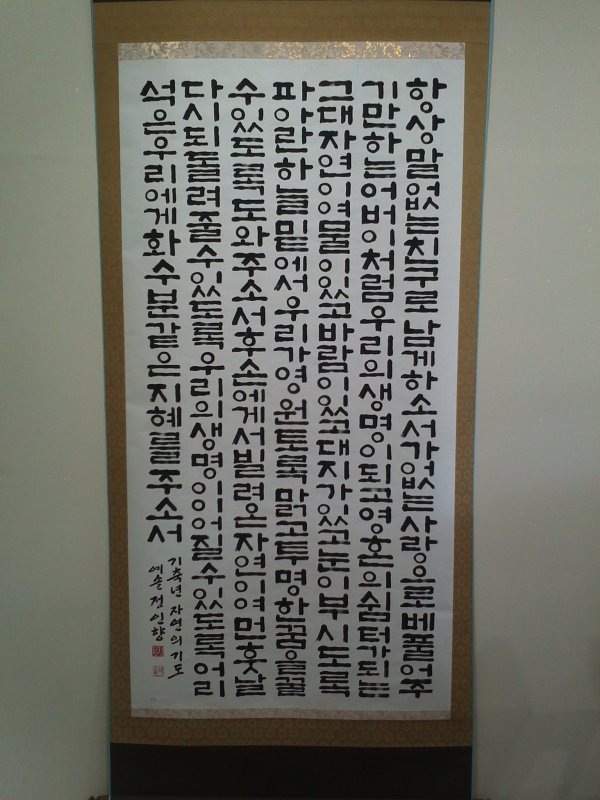 항상말없는친구로남게하소서가없는사랑으로베풀어주
기만하는어버이처럼우리의생명이되고영혼의쉼터가되는
그대자연이여물이있고바람이있고대지가있고눈이부시도록
파아란하늘밑에서우리가영원토록맑고투명한꿈을꿀
수있도록도와주소서후손에게서빌려온자연이여먼훗날
다시되돌려줄수있도록우리의생명이이어질수있도록어리
석은우리에게화수분같은지혜를주소서
기축년 자연의 기도
예솔 전인향